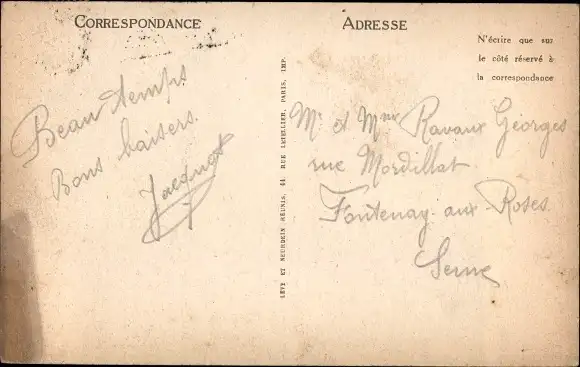 CORRESPONDANCE
Beau temps
Bons baisers.
LÉVY ET NEURDEIN RÉUNIS, 44, RUE LETELLIER, PARIS, IMP.
ADRESSE
N'écrire que sur
le côté réservé à
la correspondance
Mr et Mme Ravaux Georges
rue Mordillat
Fontenay-aux-Roses
Seine